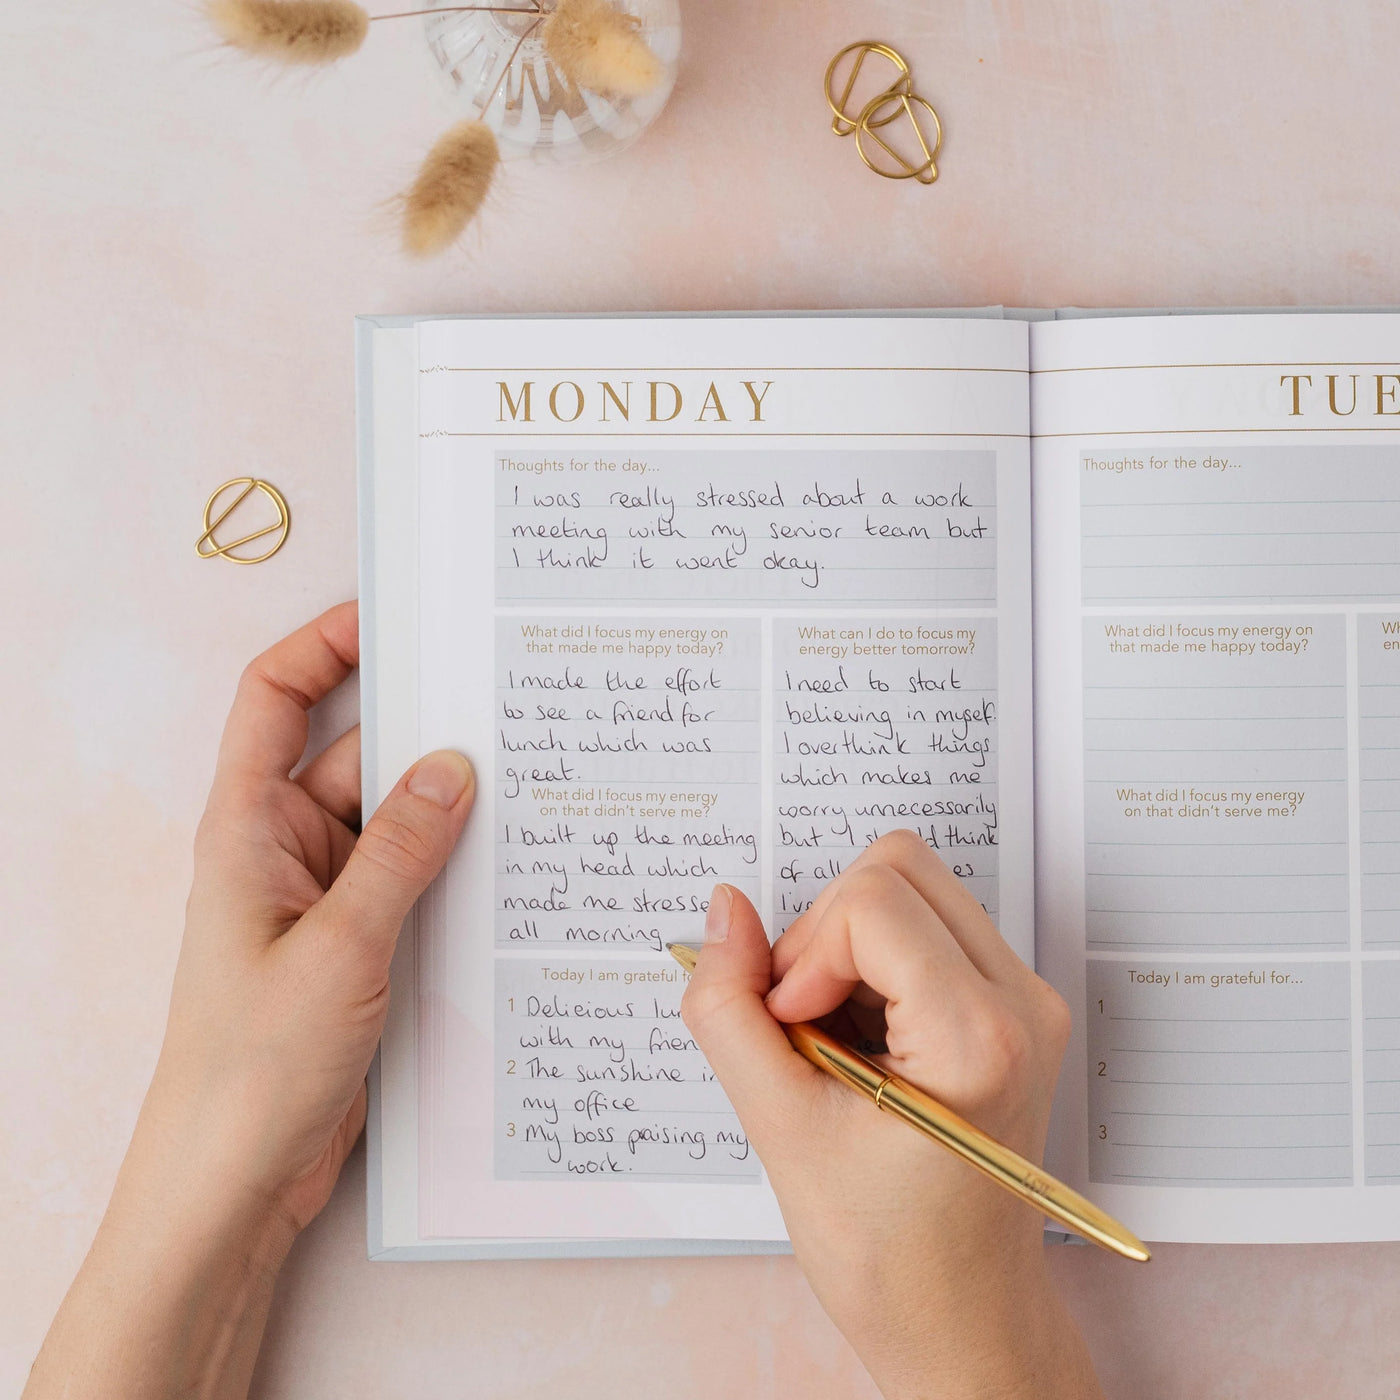 MONDAY
Thoughts for the day...
I was really stressed about a work
meeting with my senior team but
I think it went okay.
What did I focus my energy on
that made me happy today?
I made the effort
to see a friend for
lunch which was
great.
What did I focus my energy
on that didn't serve me?
I built up the meeting
in my head which
made me stresse
all morning
What can I do to focus my
energy better tomorrow?
I need to start
believing in myself.
I overthink things
which makes me
worry unnecessarily
but I think
of all
I've
Today I am grateful
1 Delicious
with my
2 The sunshine in
my office
3 My boss praising my
work.
TUE
Thoughts for the day...
What did I focus my energy on
that made me happy today?
What did I focus my energy
on that didn't serve me?
Today I am grateful for...
1
2
3